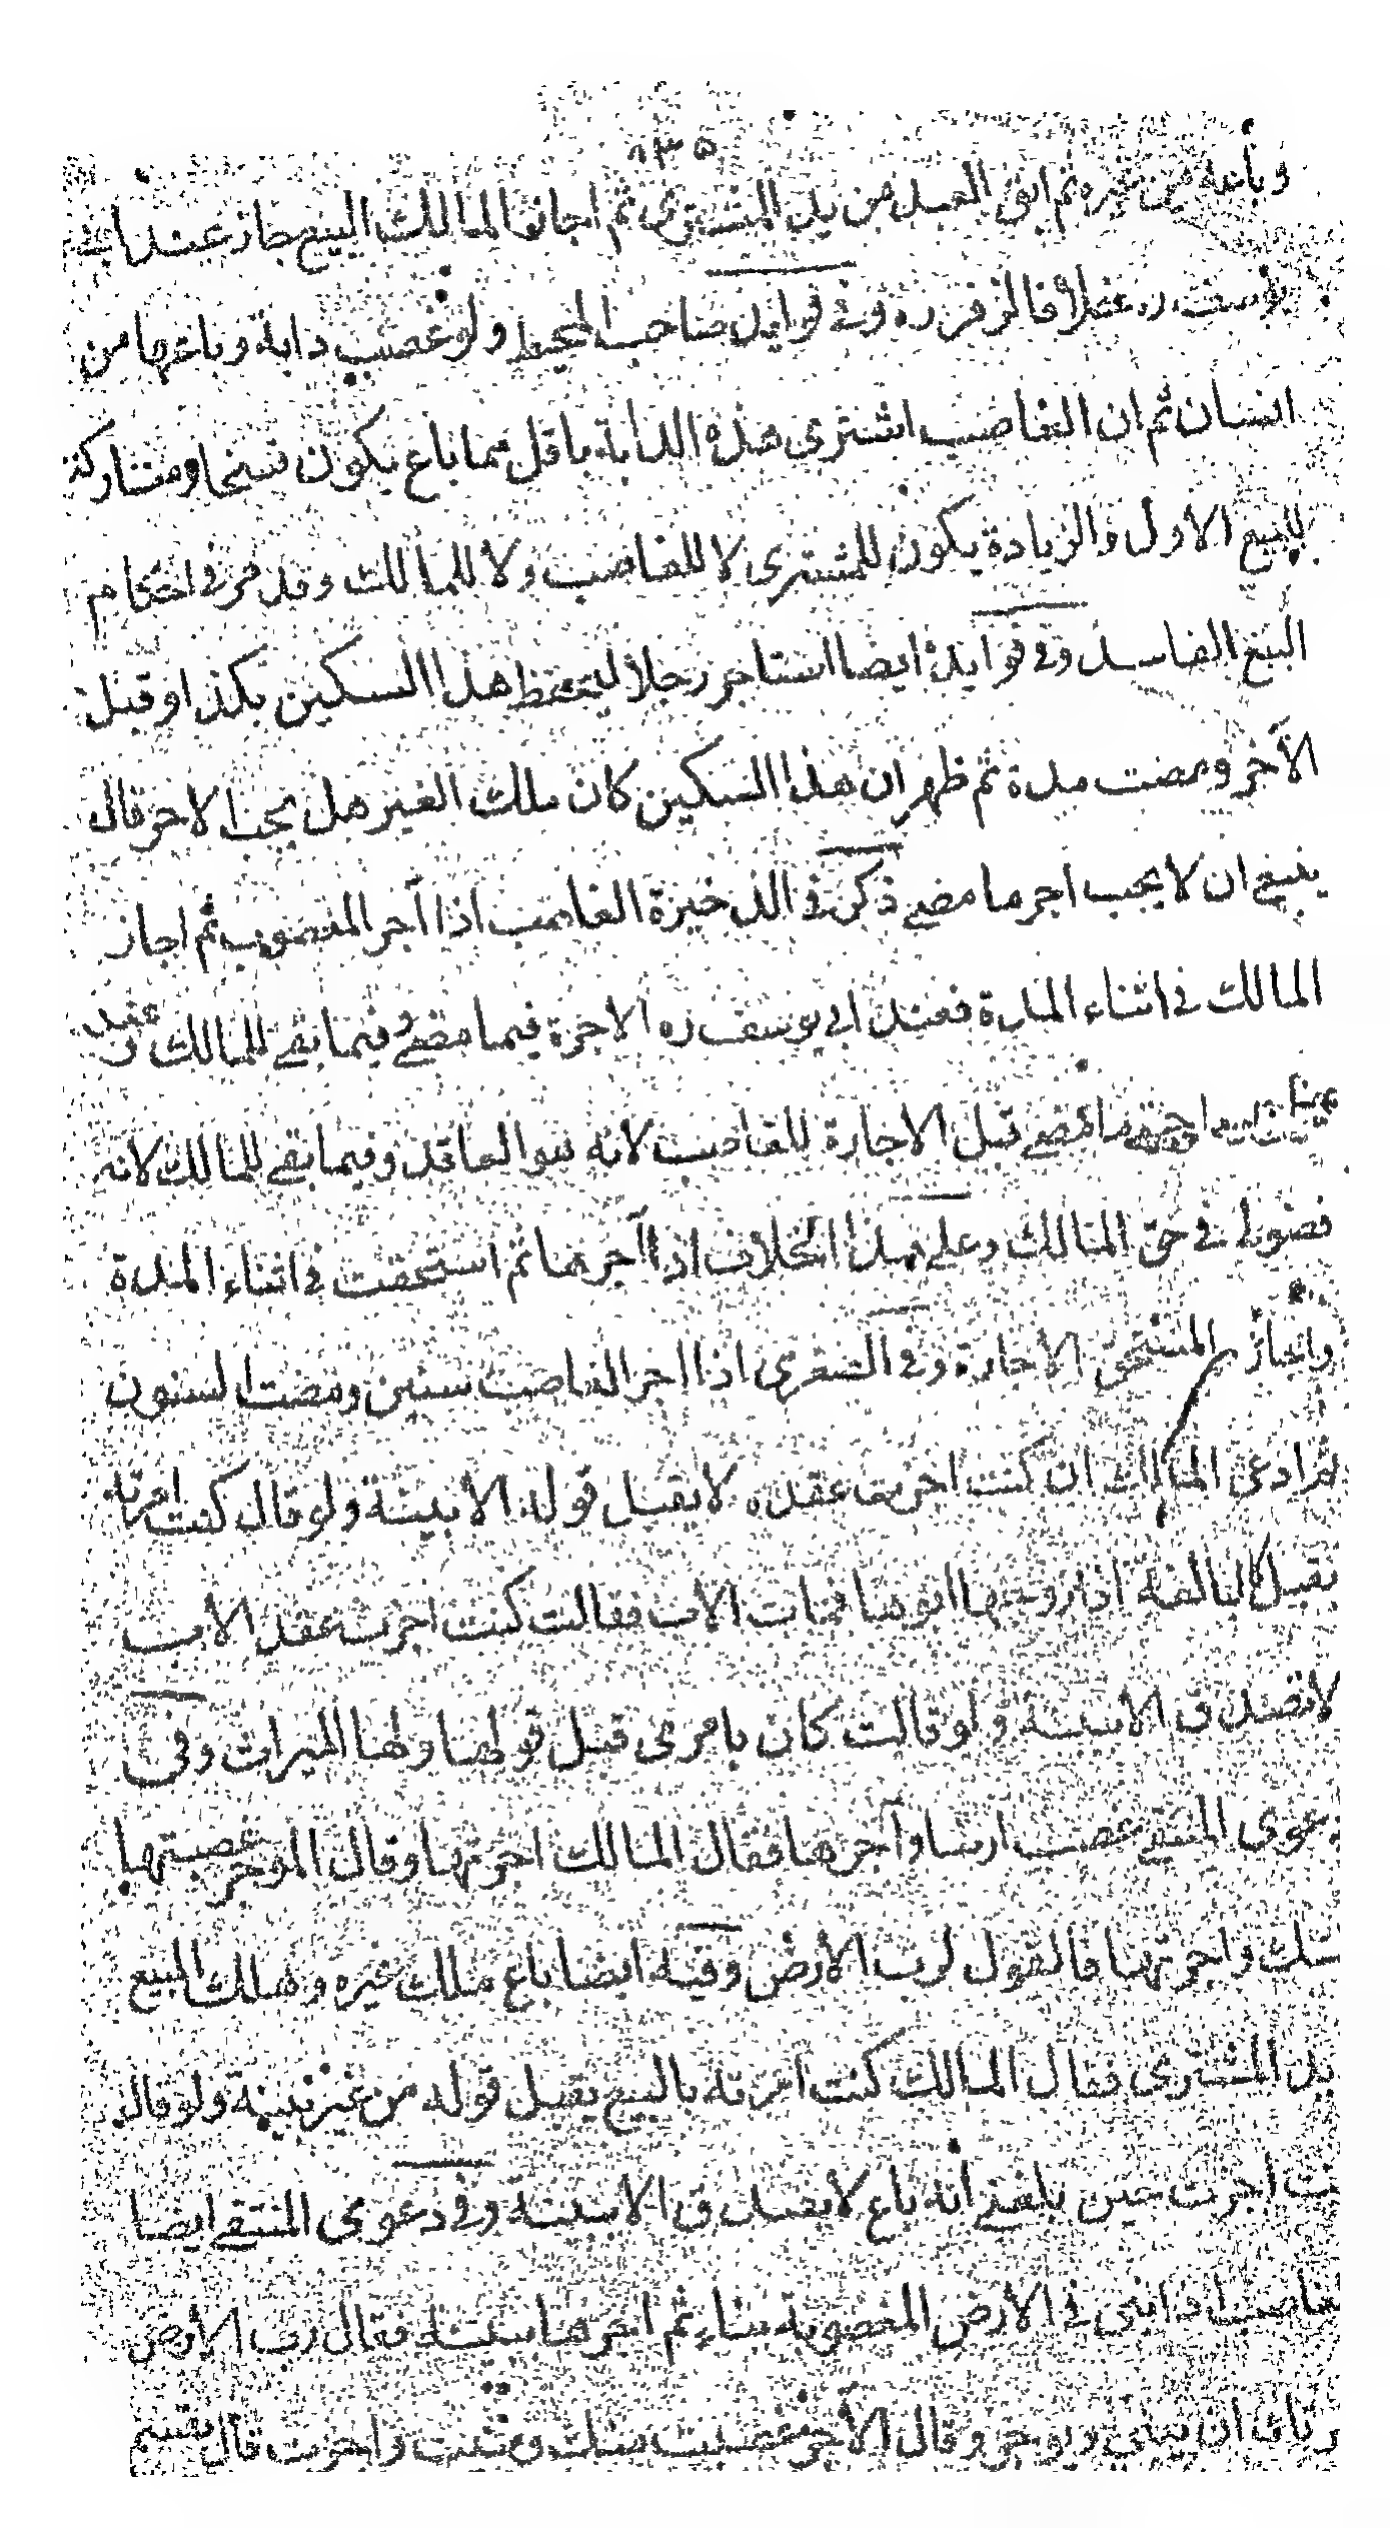 ١٣٥
وباعه من غيره ثم ابق العبد من يد المشترى ثم اجاز المالك البيع جاز عند ابى
يوسف ره خلافا لزفر ره وفى فوايد صاحب المحيط ولو غصب دابة وباعها من
انسان ثم ان الغاصب اشترى هذه الدابة باقل مما باع يكون فسخا ومتاركة
للبيع الاول والزيادة يكون للمشترى لا للغاصب ولا للمالك وقد مر فى احكام
البيع الفاسد وفى فوايده ايضا استاجر رجلا ليحفظ هذا السكين بكذا وقبل
الآخر ومضت مدة ثم ظهر ان هذا السكين كان ملك الغير هل يجب الاجر قال
ينبغى ان لا يجب اجر ما مضى ذكر فى الذخيرة الغاصب اذا آجر المغصوب ثم اجاز
المالك فى اثناء المدة فعند ابى يوسف ره الاجرة فيما مضى وفيما بقى للمالك و عند
محمد اجرة ما مضى قبل الاجازة للغاصب لانه هو العاقد وفيما بقى للمالك لانه
فضولى فى حق المالك وعلى هذا الخلاف اذا آجرها ثم استحقت فى اثناء المدة
واجاز المستحق الاجارة وفى الصغرى اذا اجر الغاصب سنين ومضت السنون
ثم ادعى المالك ان كنت اجزت عقده لا يقبل قوله الا ببينة ولو قال كنت امرته
يقبل كالبالغة اذا زوجها ابوها فمات الاب فقالت كنت اجزت عقد الاب
لا تصدق الا ببينة ولو قالت كان بامرى قبل قولها ولها الميراث وفى
دعوى المنتقى غصب ارضا وآجرها فقال المالك اجرتها وقال الموجر غصبتها
منك واجرتها فالقول لرب الارض وفيه ايضا باع ملك غيره وهلك المبيع
يد المشترى فقال المالك كنت امرته بالبيع يقبل قوله من غير بينة ولو قال
كنت اجزت حين بلغنى انه باع لا يصدق الا ببينة وفى دعوى المنتقى ايضا
غاصب وابنى فى الارض المغصوبة بناء ثم اجرها سنة فقال رب الارض
ان يبنى ويوجر وقال الآجر غصبت منك وبنيت واجرت قال يقسم